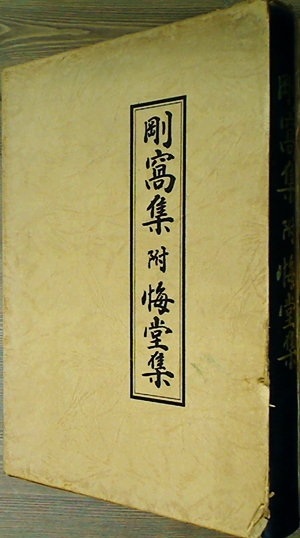 剛窩集 附 悔堂集
剛窩集 附 悔堂集